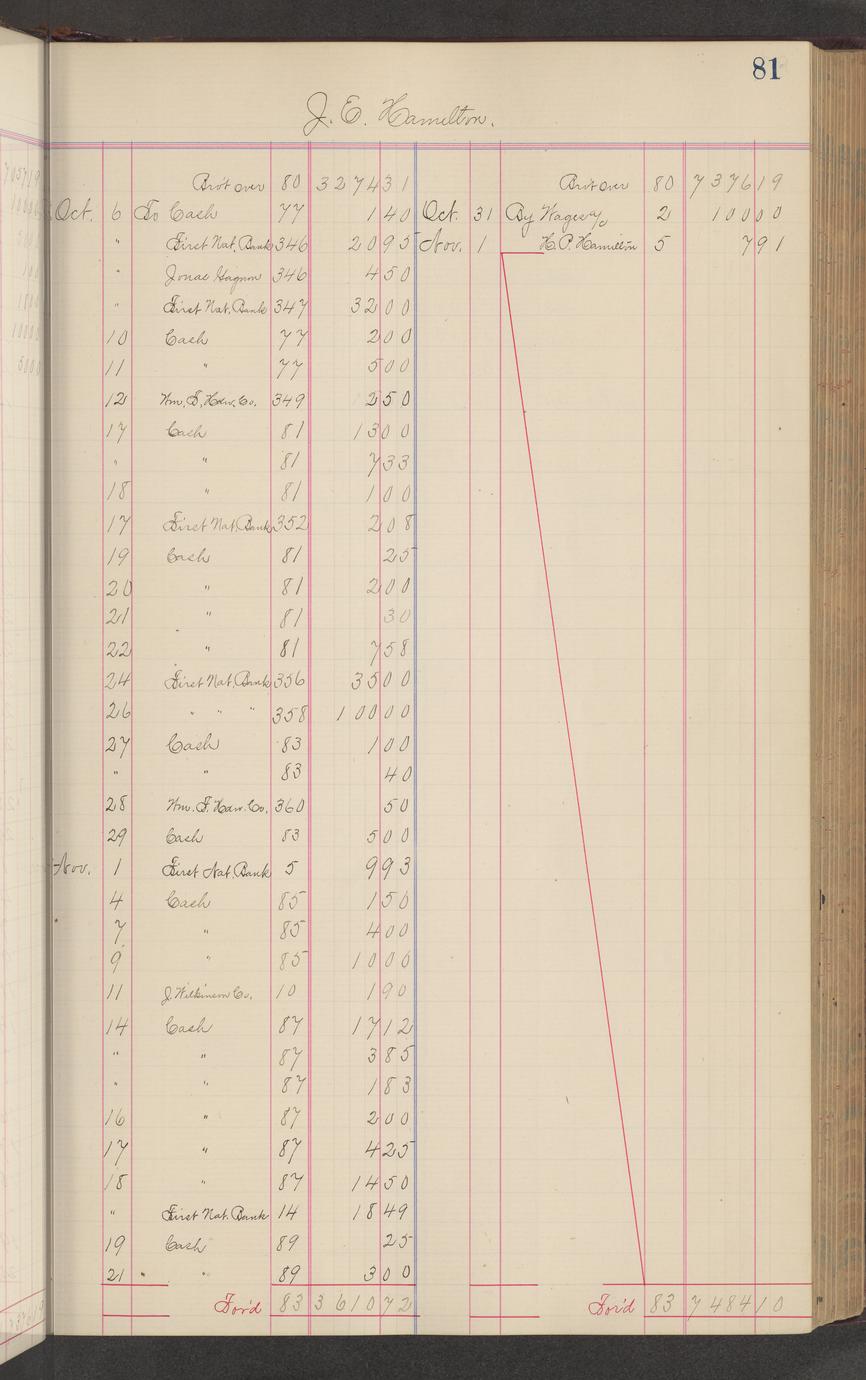 81
J. E. Hamilton.
Bro't over 80 3274 31 Bro't over 80 7376 19
Oct. 6 To Cash 77 1 40 Oct. 31 By Wages 2 100 00
" First Nat. Bank 346 20 95 Nov. 1 H. P. Hamilton 5 7 91
" Gagnon 346 4 50
" First Nat. Bank 347 32 00
10 Cash 77 2 00
11 " 77 5 00
12 Wm. F. Hdw. Co. 349 2 50
17 Cash 81 13 00
" " 81 7 33
18 " 81 1 00
17 First Nat. Bank 352 2 08
19 Cash 81 25
20 " 81 2 00
21 " 81 30
22 " 81 7 58
24 First Nat. Bank 356 35 00
26 " " " 358 100 00
27 Cash 83 1 00
" " 83 40
28 Wm. F. Hdw. Co. 360 50
29 Cash 83 5 00
Nov. 1 First Nat. Bank 5 9 93
4 Cash 85 1 50
7 " 85 4 00
9 " 85 10 00
11 J. Wilkinson Co. 10 1 90
14 Cash 87 17 12
" " 87 3 85
" " 87 1 83
16 " 87 2 00
17 " 87 4 25
18 " 87 14 50
" First Nat. Bank 14 18 49
19 Cash 89 25
21 " " 89 3 00
For'd 83 3610 72 For'd 83 7484 10